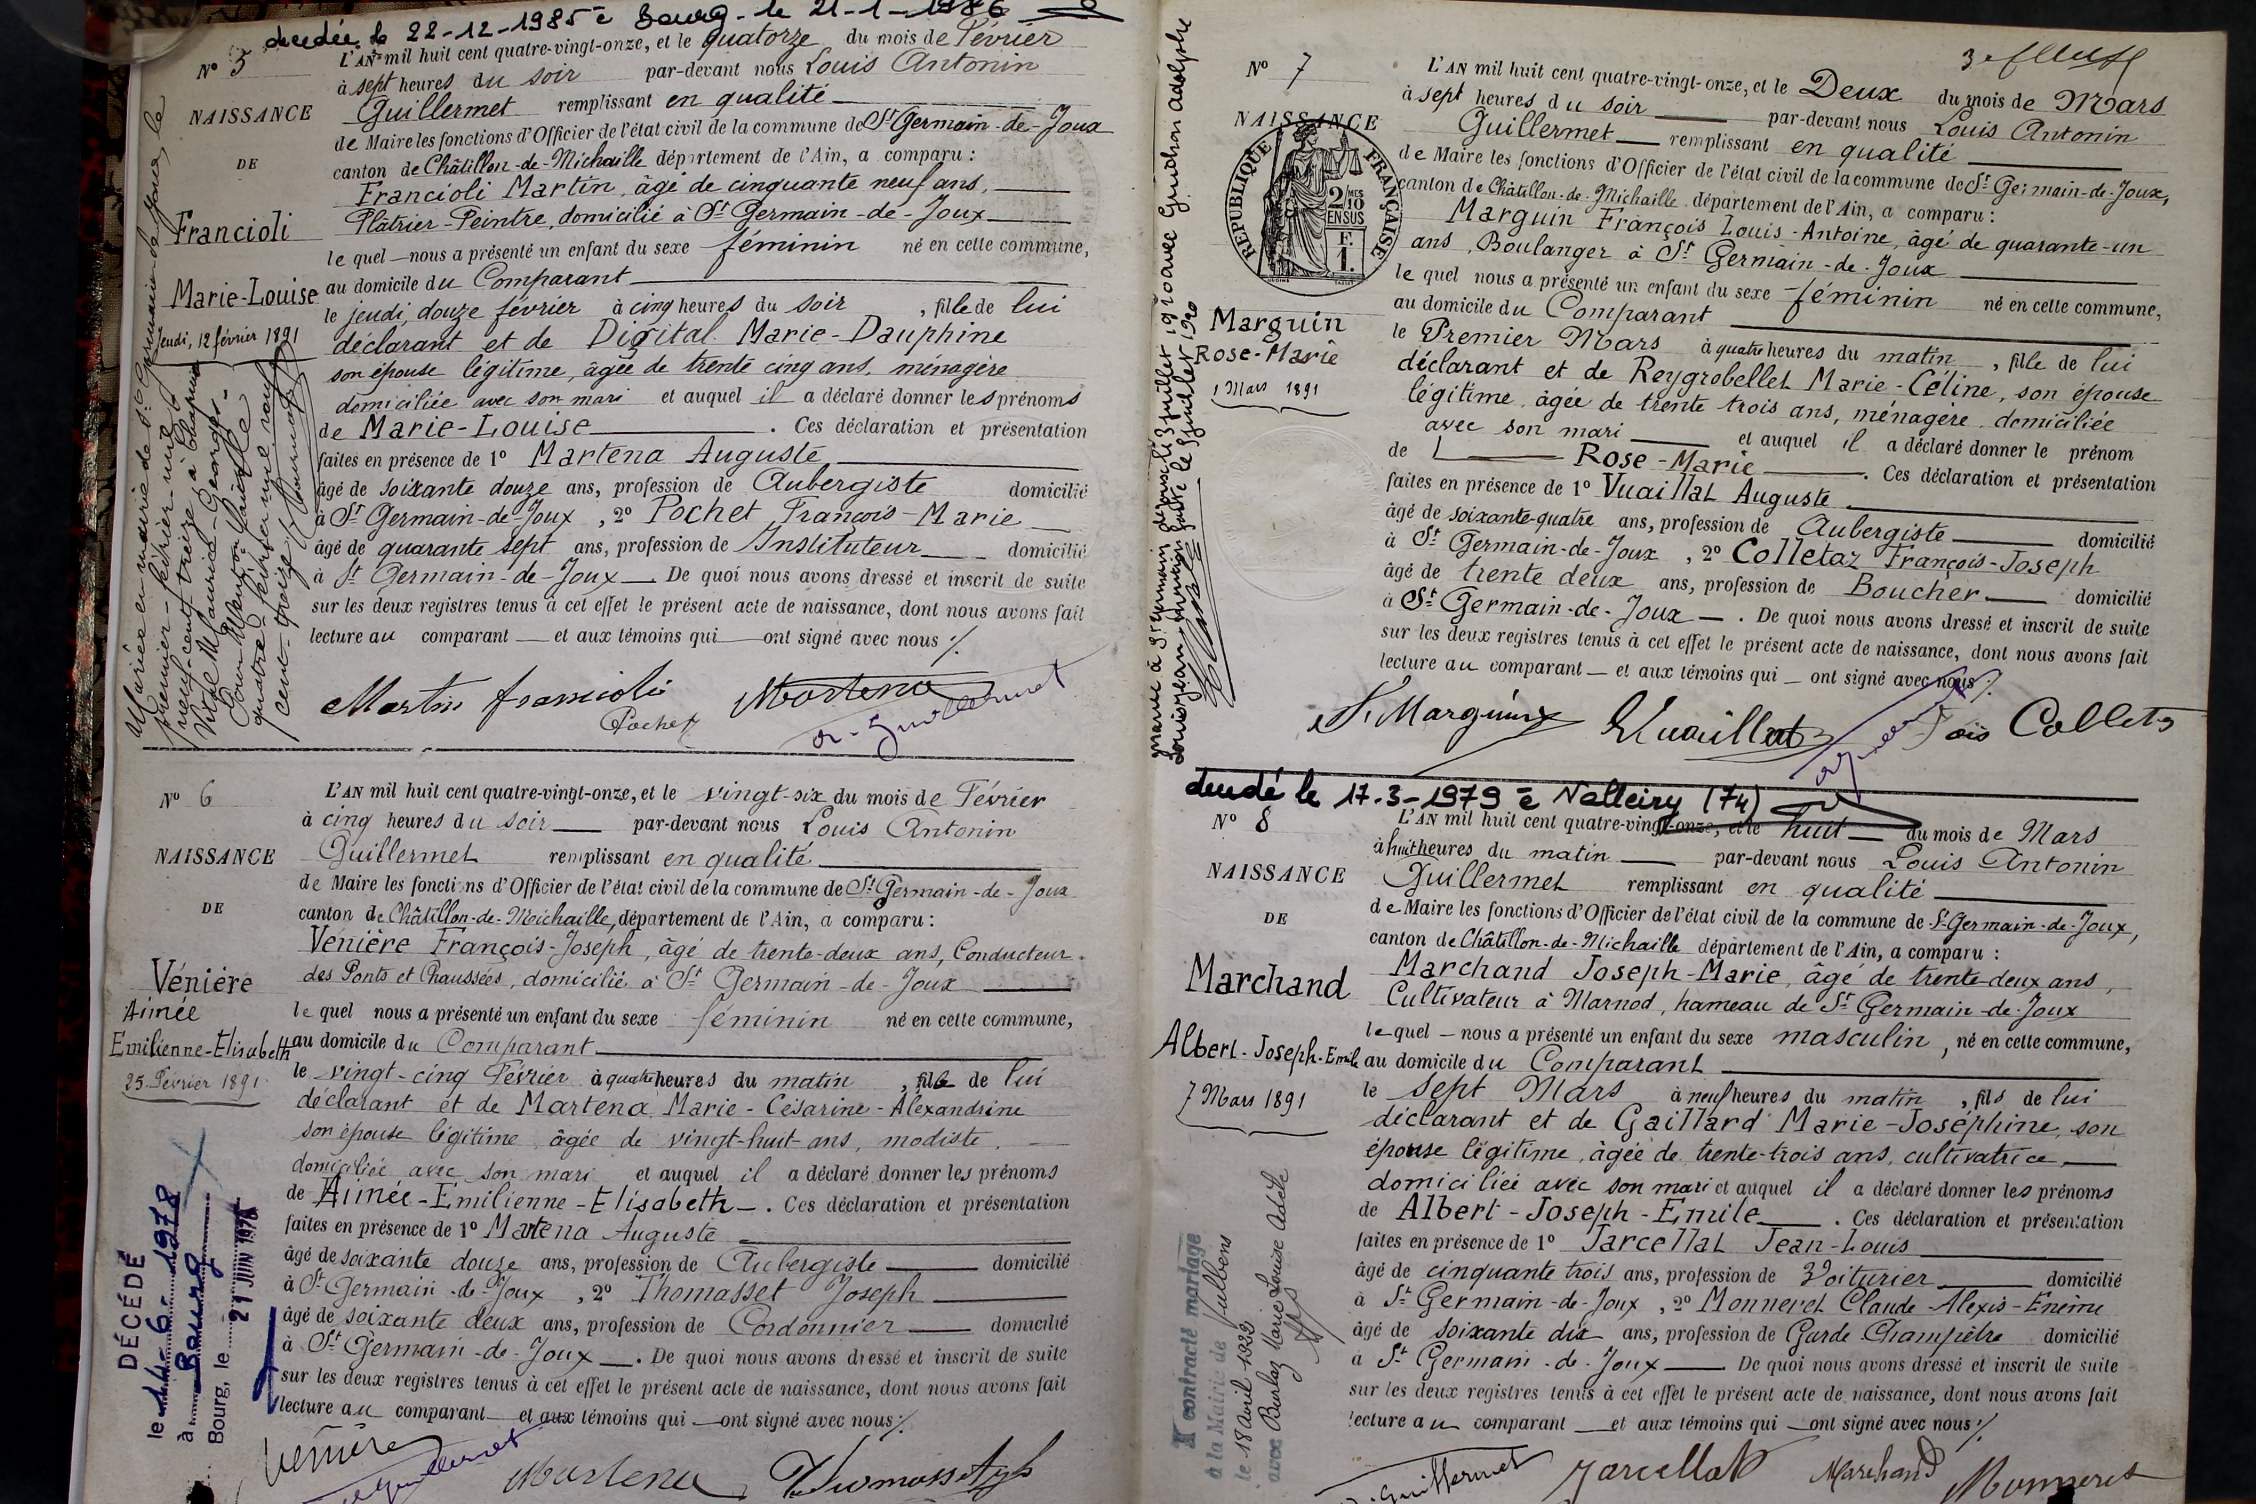 décédée le 22-12-1985 à Bourg - le 21-1-1986
N° 5
NAISSANCE
DE
Francioli
Marie-Louise
Jeudi, 12 février 1891
Mariée en mairie de St Germain de Joux, le
premier février mil
neuf-cent-treize à Chapuis
Vital Maurice-Georges.
Pour Mention faite le
quatre février mil neuf
cent-treize.
L'AN mil huit cent quatre-vingt-onze, et le quatorze du mois de Février
à sept heures du soir par-devant nous Louis Antonin
Guillermet remplissant en qualité
de Maire les fonctions d'Officier de l'état civil de la commune de St Germain-de-Joux
canton de Châtillon-de-Michaille département de l'Ain, a comparu :
Francioli Martin, âgé de cinquante neuf ans,
Plâtrier-Peintre, domicilié à St Germain-de-Joux
le quel nous a présenté un enfant du sexe féminin né en cette commune,
au domicile du Comparant
le jeudi, douze février à cinq heures du soir, fille de lui
déclarant et de Digital Marie-Dauphine
son épouse légitime, âgée de trente cinq ans, ménagère
domiciliée avec son mari et auquel il a déclaré donner les prénoms
de Marie-Louise. Ces déclaration et présentation
faites en présence de 1° Martena Auguste
âgé de soixante douze ans, profession de Aubergiste domicilié
à St Germain-de-Joux, 2° Pochet François-Marie
âgé de quarante sept ans, profession de Instituteur domicilié
à St Germain-de-Joux. De quoi nous avons dressé et inscrit de suite
sur les deux registres tenus à cet effet le présent acte de naissance, dont nous avons fait
lecture au comparant et aux témoins qui ont signé avec nous ./.
Martin francioli Martena
Pochet A. Guillermet
N° 6
NAISSANCE
DE
Vénière
Aimée
Emilienne-Elisabeth
25 Février 1891
DÉCÉDÉ
le 14-6-1978
à Bourg
Bourg, le 21 JUIN 1978
L'AN mil huit cent quatre-vingt-onze, et le vingt-six du mois de Février
à cinq heures du soir par-devant nous Louis Antonin
Guillermet remplissant en qualité
de Maire les fonctions d'Officier de l'état civil de la commune de St Germain-de-Joux
canton de Châtillon-de-Michaille, département de l'Ain, a comparu :
Vénière François-Joseph, âgé de trente-deux ans, Conducteur
des Ponts et Chaussées, domicilié à St Germain-de-Joux
le quel nous a présenté un enfant du sexe féminin né en cette commune,
au domicile du Comparant
le vingt-cinq Février à quatre heures du matin, fille de lui
déclarant et de Martena Marie-Césarine-Alexandrine
son épouse légitime âgée de vingt-huit ans, modiste,
domiciliée avec son mari et auquel il a déclaré donner les prénoms
de Aimée-Emilienne-Elisabeth. Ces déclaration et présentation
faites en présence de 1° Martena Auguste
âgé de soixante douze ans, profession de Aubergiste domicilié
à St Germain-de-Joux, 2° Thomasset Joseph
âgé de soixante deux ans, profession de Cordonnier domicilié
à St Germain-de-Joux. De quoi nous avons dressé et inscrit de suite
sur les deux registres tenus à cet effet le présent acte de naissance, dont nous avons fait
lecture au comparant et aux témoins qui ont signé avec nous ./.
Vénière
A. Guillermet Martena Thomasset Jh
N° 7
NAISSANCE
RÉPUBLIQUE FRANÇAISE
2 MES
10
EN SUS
F.
1.
Marguin
Rose-Marie
1 Mars 1891
L'AN mil huit cent quatre-vingt-onze, et le Deux du mois de Mars
à sept heures du soir par-devant nous Louis Antonin
Guillermet remplissant en qualité
de Maire les fonctions d'Officier de l'état civil de la commune de St Germain-de-Joux,
canton de Châtillon-de-Michaille département de l'Ain, a comparu :
Marguin François Louis-Antoine, âgé de quarante-un
ans, Boulanger à St Germain-de-Joux
le quel nous a présenté un enfant du sexe féminin né en cette commune,
au domicile du Comparant
le Premier Mars à quatre heures du matin, fille de lui
déclarant et de Reygrobellet Marie-Céline, son épouse
légitime âgée de trente trois ans, ménagère domiciliée
avec son mari et auquel il a déclaré donner le prénom
de Rose-Marie. Ces déclaration et présentation
faites en présence de 1° Vuaillat Auguste
âgé de soixante-quatre ans, profession de Aubergiste domicilié
à St Germain-de-Joux, 2° Colletaz François-Joseph
âgé de trente deux ans, profession de Boucher domicilié
à St Germain-de-Joux. De quoi nous avons dressé et inscrit de suite
sur les deux registres tenus à cet effet le présent acte de naissance, dont nous avons fait
lecture au comparant et aux témoins qui ont signé avec nous ./.
Marguin Vuaillat Fois Colletaz
décédé le 17-3-1979 à Valleiry (74)
N° 8
NAISSANCE
DE
Marchand
Albert-Joseph-Emile
7 Mars 1891
A contracté mariage
à la Mairie de Vulbens
le 18 avril 1922
avec Burlaz Marie Louise Adèle
L'AN mil huit cent quatre-vingt-onze, et le huit du mois de Mars
à huit heures du matin par-devant nous Louis Antonin
Guillermet remplissant en qualité
de Maire les fonctions d'Officier de l'état civil de la commune de St Germain-de-Joux,
canton de Châtillon-de-Michaille département de l'Ain, a comparu :
Marchand Joseph-Marie, âgé de trente-deux ans,
Cultivateur à Marnod, hameau de St Germain-de-Joux
le quel nous a présenté un enfant du sexe masculin, né en cette commune,
au domicile du Comparant
le sept Mars à neuf heures du matin, fils de lui
déclarant et de Gaillard Marie-Joséphine, son
épouse légitime, âgée de trente-trois ans, cultivatrice
domiciliée avec son mari et auquel il a déclaré donner les prénoms
de Albert-Joseph-Emile. Ces déclaration et présentation
faites en présence de 1° Jarcellat Jean-Louis
âgé de cinquante trois ans, profession de Voiturier domicilié
à St Germain-de-Joux, 2° Monneret Claude-Alexis-Enême
âgé de soixante dix ans, profession de Garde Champêtre domicilié
à St Germain-de-Joux. De quoi nous avons dressé et inscrit de suite
sur les deux registres tenus à cet effet le présent acte de naissance, dont nous avons fait
lecture au comparant et aux témoins qui ont signé avec nous ./.
A. Guillermet Jarcellat Marchand Monneret